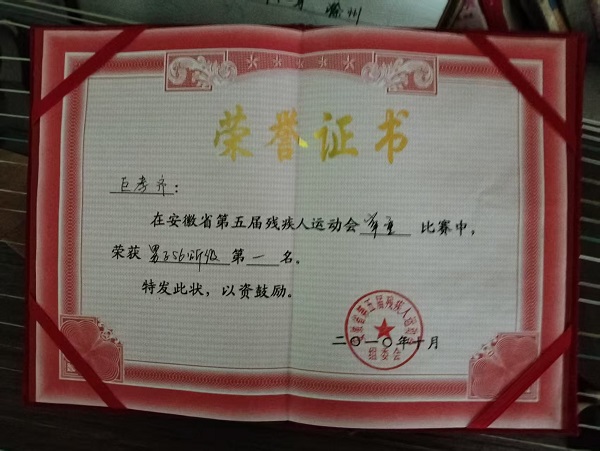 滁州
荣誉证书
巨孝齐：
在安徽省第五届残疾人运动会举重 比赛中，
荣获男子56公斤级第一名。
特发此状，以资鼓励。
安徽省第五届残疾人运动会
组委会
二〇一〇年 月